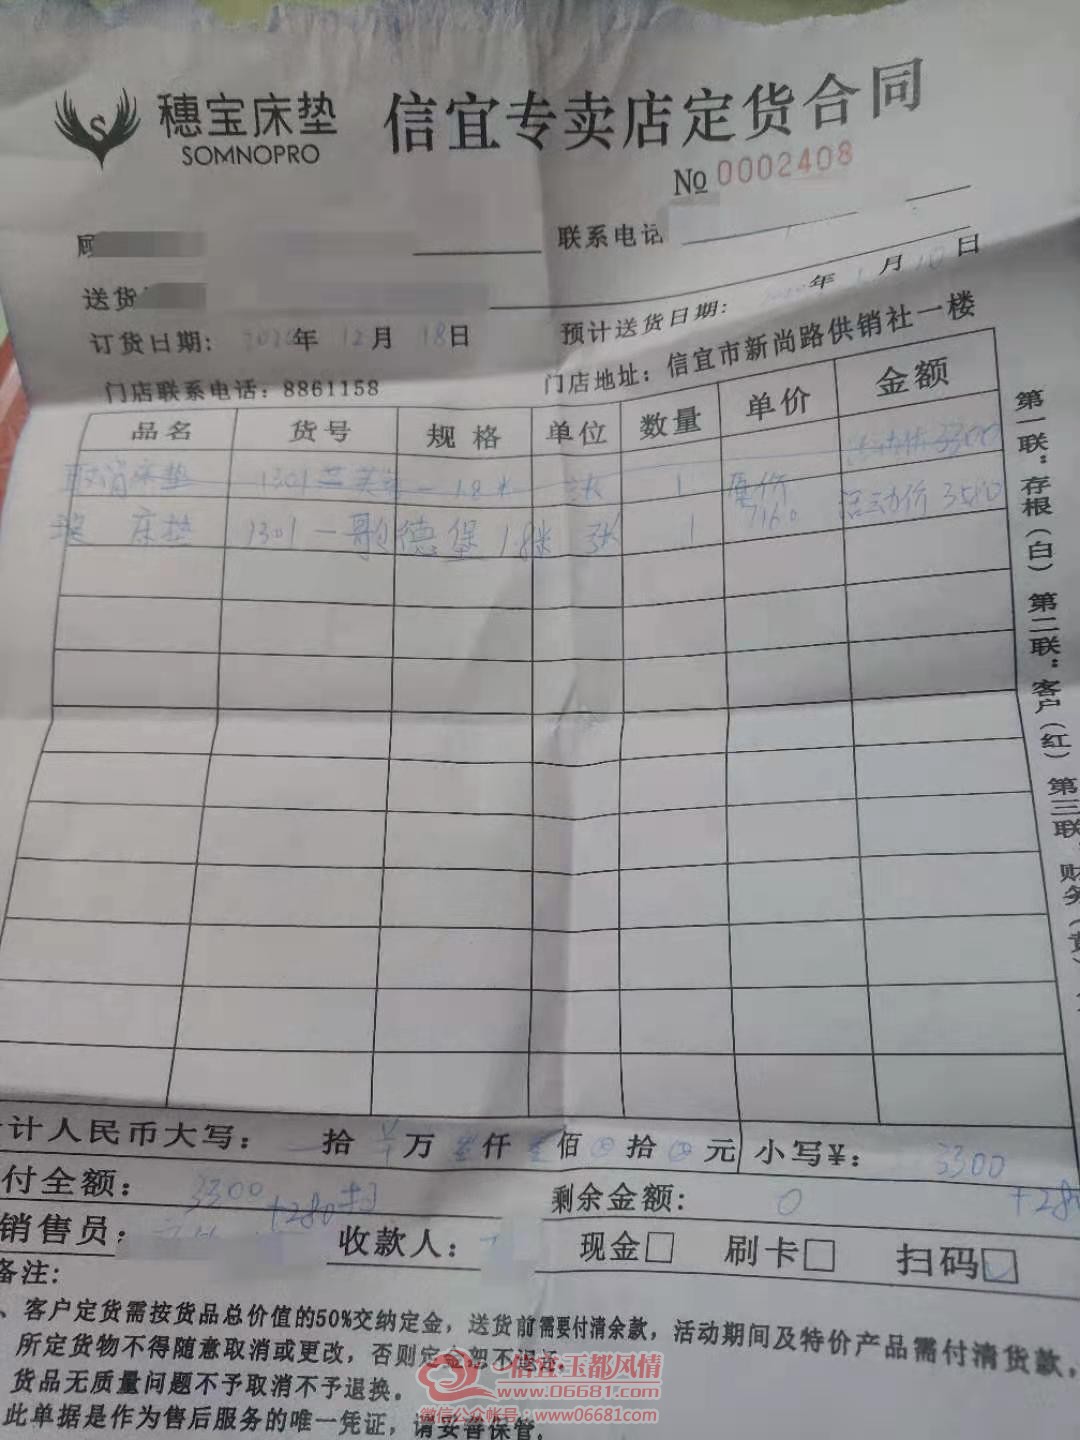 穗宝床垫 信宜专卖店定货合同
SOMNOPRO
№ 0002408
顾
联系电话
送货
预计送货日期: 年 月 10日
订货日期: 年12月18日
门店联系电话:8861158
门店地址:信宜市新尚路供销社一楼
品名 货号 规格 单位 数量 单价 金额
取消床垫 1301 1.8米 张 1 3300
床垫 1301一歌德堡 1.8米 张 1 原价7160 活动价 3580
第一联:存根(白) 第二联:客户(红) 第三联:财务(黄)
计人民币大写: 拾 万 仟 佰 拾 元 小写¥: 3300
付全额: 3300 +280 剩余金额: 0 +280
销售员: 收款人: 现金□ 刷卡□ 扫码☑
备注:
、客户定货需按货品总价值的50%交纳定金,送货前需要付清余款,活动期间及特价产品需付清货款,
所定货物不得随意取消或更改,否则定金恕不退还.
货品无质量问题不予取消不予退换.
此单据是作为售后服务的唯一凭证,请妥善保管.
信宜玉都风情
www.06681.com
微信公众帐号:www06681com